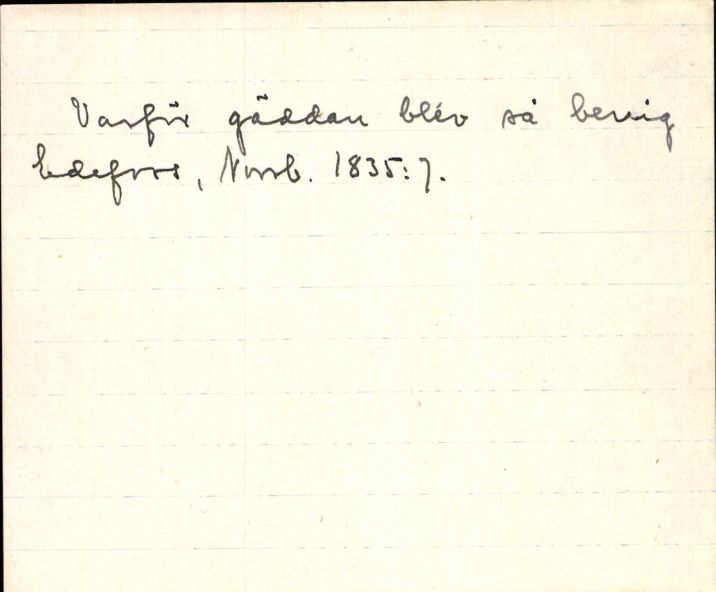 Varför gäddan blév så benig
Edefors, Norrb. 1835:7.